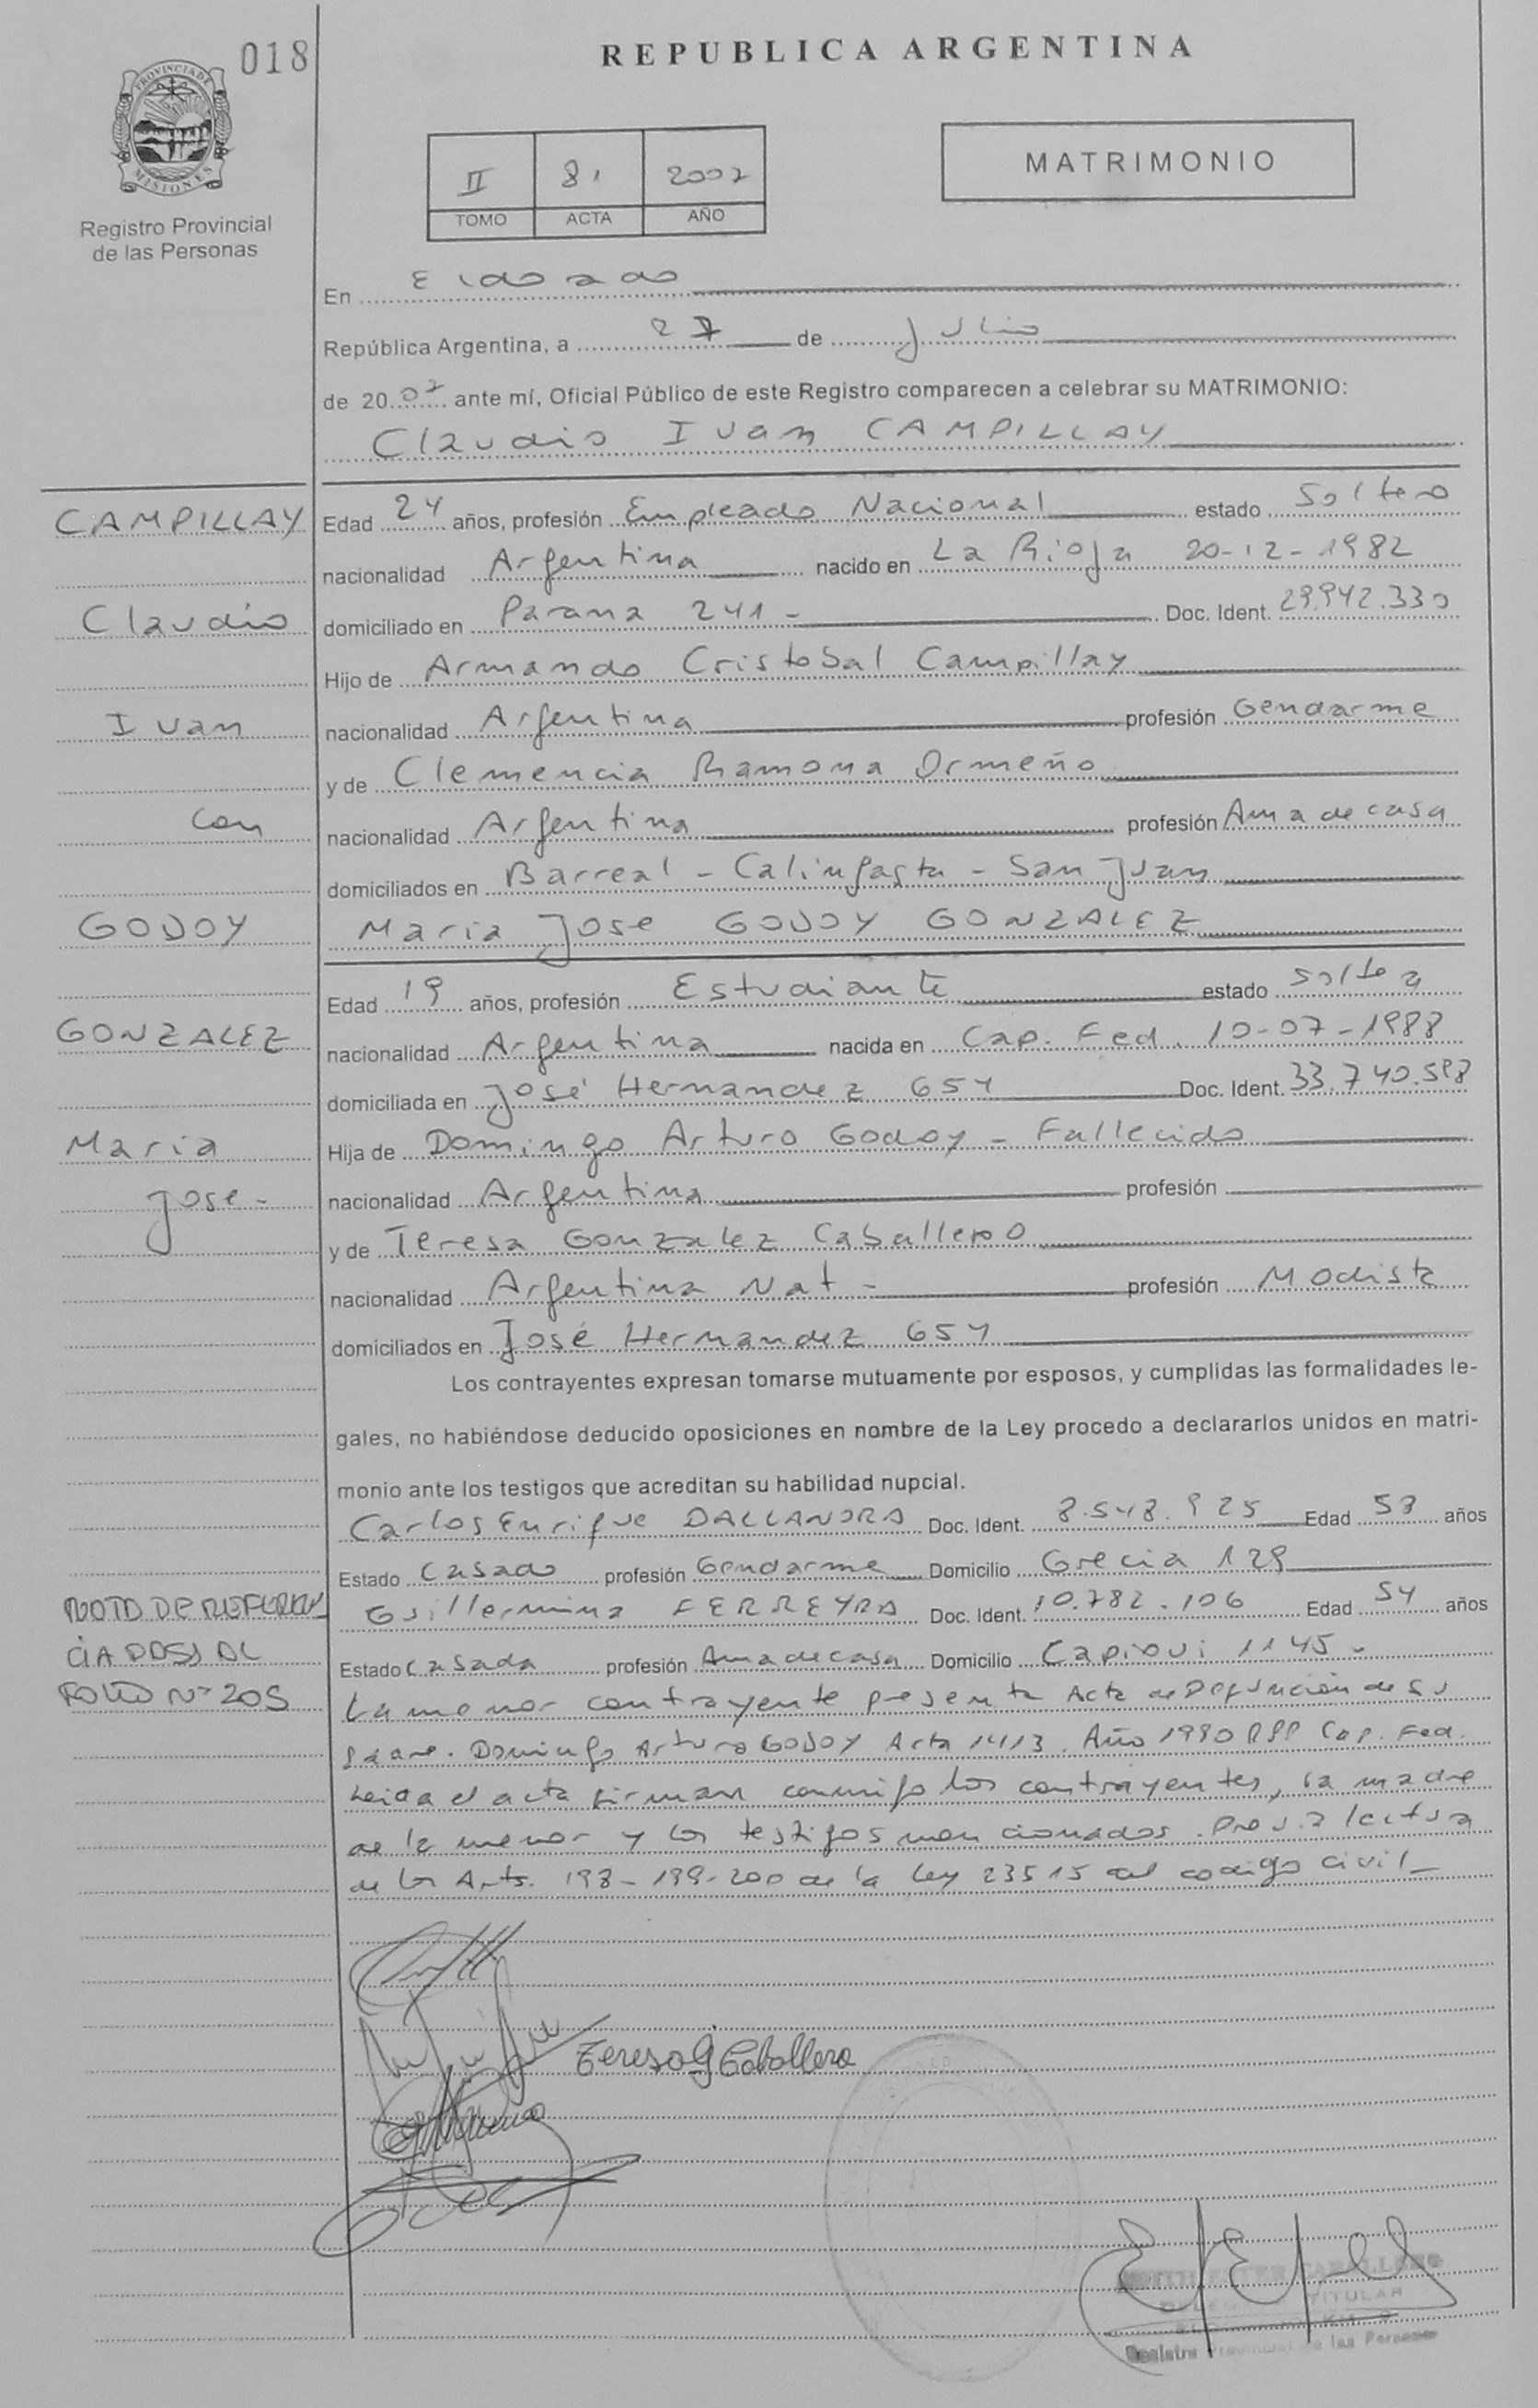 018
REPUBLICA ARGENTINA
PROVINCIA DE
MISIONES
Registro Provincial
de las Personas
II 81 2007
TOMO ACTA AÑO
MATRIMONIO
En Eldorado
República Argentina, a 27 de julio
de 2007 ante mí, Oficial Público de este Registro comparecen a celebrar su MATRIMONIO:
Claudio Ivan CAMPILLAY
CAMPILLAY
Edad 24 años, profesión Empleado Nacional estado Soltero
nacionalidad Argentina nacido en La Rioja 20-12-1982
Claudio
domiciliado en Parana 241 - Doc. Ident. 29.942.330
Hijo de Armando Cristobal Campillay
Ivan
nacionalidad Argentina profesión Gendarme
y de Clemencia Ramona Ormeño
con
nacionalidad Argentina profesión Ama de casa
domiciliados en Barreal - Calingasta - San Juan
GODOY
Maria Jose GODOY GONZALEZ
Edad 19 años, profesión Estudiante estado soltera
GONZALEZ
nacionalidad Argentina nacida en Cap. Fed. 10-07-1988
domiciliada en José Hernandez 654 Doc. Ident. 33.740.598
Maria
Hija de Domingo Arturo Godoy - Fallecido
Jose -
nacionalidad Argentina profesión
y de Teresa Gonzalez Caballero
nacionalidad Argentina Nat - profesión Modista
domiciliados en José Hernandez 654
Los contrayentes expresan tomarse mutuamente por esposos, y cumplidas las formalidades le-
gales, no habiéndose deducido oposiciones en nombre de la Ley procedo a declararlos unidos en matri-
monio ante los testigos que acreditan su habilidad nupcial.
Carlos Enrique DALLANORA Doc. Ident. 8.548.925 Edad 53 años
Estado Casado profesión Gendarme Domicilio Grecia 129
NOTA DE REFEREN
Guillermina FERREYRA Doc. Ident. 10.782.106 Edad 54 años
CIA PASA AL
Estado Casada profesión Ama de casa Domicilio Capiovi 1145 -
FOLIO Nº 205
La menor contrayente presenta Acta de Defunción de su
padre. Domingo Arturo GODOY Acta 1413. Año 1990 RPP Cap. Fed.
Leida el acta firman conmigo los contrayentes, la madre
de la menor y los testigos mencionados. Previa lectura
de los Arts. 198-199-200 de la Ley 23515 del codigo civil -
Teresa G Caballero
CABALLERO
TITULAR
Registro Provincial de las Personas